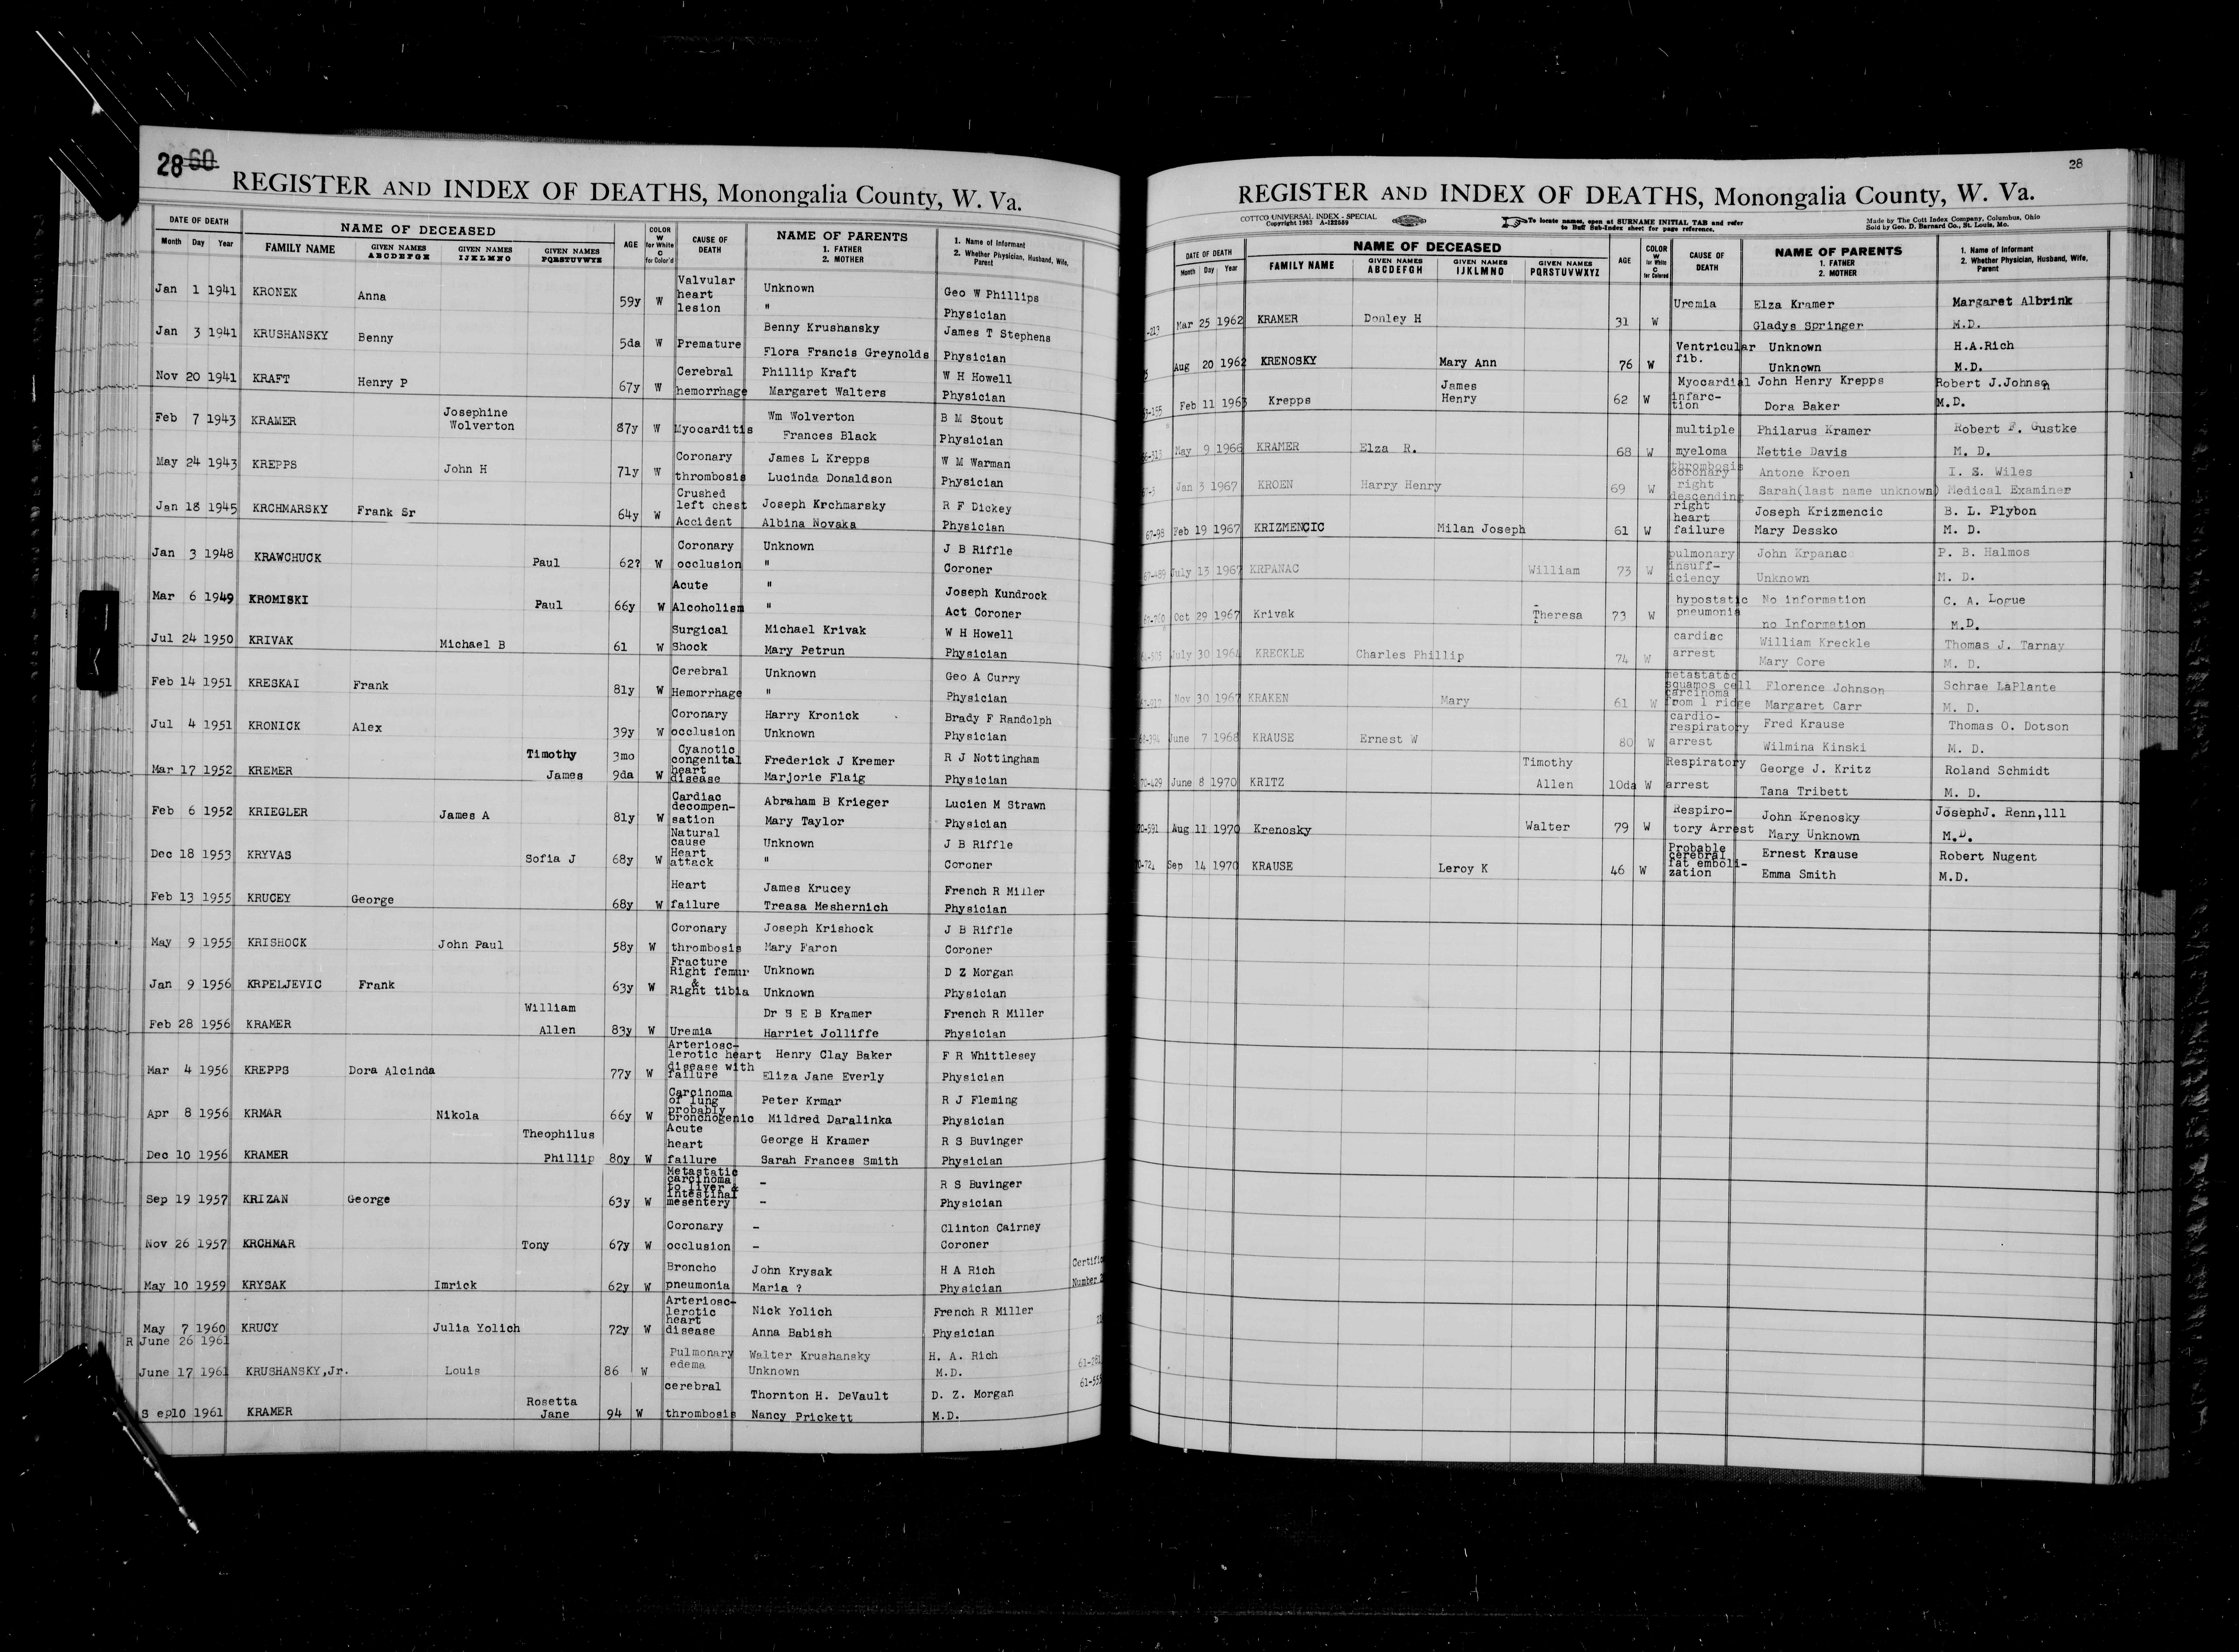 28 60
REGISTER AND INDEX OF DEATHS, Monongalia County, W. Va.
DATE OF DEATH NAME OF DECEASED AGE COLOR W for White C for Color'd CAUSE OF DEATH NAME OF PARENTS 1. FATHER 2. MOTHER 1. Name of Informant 2. Whether Physician, Husband, Wife, Parent
Month Day Year FAMILY NAME GIVEN NAMES ABCDEFGH GIVEN NAMES IJKLMNO GIVEN NAMES PQRSTUVWXYZ
Jan 1 1941 KRONEK Anna 59y W Valvular heart lesion Unknown " Geo W Phillips Physician
Jan 3 1941 KRUSHANSKY Benny 5da W Premature Benny Krushansky Flora Francis Greynolds James T Stephens Physician
Nov 20 1941 KRAFT Henry P 67y W Cerebral hemorrhage Phillip Kraft Margaret Walters W H Howell Physician
Feb 7 1943 KRAMER Josephine Wolverton 87y W Myocarditis Wm Wolverton Frances Black B M Stout Physician
May 24 1943 KREPPS John H 71y W Coronary thrombosis James L Krepps Lucinda Donaldson W M Warman Physician
Jan 18 1945 KRCHMARSKY Frank Sr 64y W Crushed left chest Accident Joseph Krchmarsky Albina Novaka R F Dickey Physician
Jan 3 1948 KRAWCHUCK Paul 62? W Coronary occlusion Unknown " J B Riffle Coroner
Mar 6 1949 KROMISKI Paul 66y W Acute Alcoholism " " Joseph Kundrock Act Coroner
Jul 24 1950 KRIVAK Michael B 61 W Surgical Shock Michael Krivak Mary Petrun W H Howell Physician
Feb 14 1951 KRESKAI Frank 81y W Cerebral Hemorrhage Unknown " Geo A Curry Physician
Jul 4 1951 KRONICK Alex 39y W Coronary occlusion Harry Kronick Unknown Brady F Randolph Physician
Mar 17 1952 KREMER Timothy James 3mo 9da W Cyanotic congenital heart disease Frederick J Kremer Marjorie Flaig R J Nottingham Physician
Feb 6 1952 KRIEGLER James A 81y W Cardiac decompen- sation Abraham B Krieger Mary Taylor Lucien M Strawn Physician
Dec 18 1953 KRYVAS Sofia J 68y W Natural cause Heart attack Unknown " J B Riffle Coroner
Feb 13 1955 KRUCEY George 68y W Heart failure James Krucey Treasa Meshernich French R Miller Physician
May 9 1955 KRISHOCK John Paul 58y W Coronary thrombosis Joseph Krishock Mary Faron J B Riffle Coroner
Jan 9 1956 KRPELJEVIC Frank 63y W Fracture Right femur & Right tibia Unknown Unknown D Z Morgan Physician
Feb 28 1956 KRAMER William Allen 83y W Uremia Dr E B Kramer Harriet Jolliffe French R Miller Physician
Mar 4 1956 KREPPS Dora Alcinda 77y W Arteriosc- lerotic heart disease with failure Henry Clay Baker Eliza Jane Everly F R Whittlesey Physician
Apr 8 1956 KRMAR Nikola 66y W Carcinoma of lung probably bronchogenic Peter Krmar Mildred Daralinka R J Fleming Physician
Dec 10 1956 KRAMER Theophilus Phillip 80y W Acute heart failure George H Kramer Sarah Frances Smith R S Buvinger Physician
Sep 19 1957 KRIZAN George 63y W Metastatic carcinoma to liver & intestinal mesentery - - R S Buvinger Physician
Nov 26 1957 KRCHMAR Tony 67y W Coronary occlusion - - Clinton Cairney Coroner
May 10 1959 KRYSAK Imrick 62y W Broncho pneumonia John Krysak Maria ? H A Rich Physician
May 7 1960 KRUCY Julia Yolich 72y W Arteriosc- lerotic heart disease Nick Yolich Anna Babish French R Miller Physician
R June 26 1961
June 17 1961 KRUSHANSKY,Jr. Louis 86 W Pulmonary edema Walter Krushansky Unknown H. A. Rich M.D.
S ep10 1961 KRAMER Rosetta Jane 94 W cerebral thrombosis Thornton H. DeVault Nancy Prickett D. Z. Morgan M.D. 61-555
28
REGISTER AND INDEX OF DEATHS, Monongalia County, W. Va.
COTTCO UNIVERSAL INDEX - SPECIAL
Copyright 1953 A-122559
To locate names, open at SURNAME INITIAL TAB and refer
to Buff Sub-Index sheet for page reference.
Made by The Cott Index Company, Columbus, Ohio
Sold by Geo. D. Barnard Co., St. Louis, Mo.
DATE OF DEATH NAME OF DECEASED AGE COLOR W for White C for Colored CAUSE OF DEATH NAME OF PARENTS 1. FATHER 2. MOTHER 1. Name of Informant 2. Whether Physician, Husband, Wife, Parent
Month Day Year FAMILY NAME GIVEN NAMES ABCDEFGH GIVEN NAMES IJKLMNO GIVEN NAMES PQRSTUVWXYZ
-213 Mar 25 1962 KRAMER Donley H 31 W Uremia Elza Kramer Gladys Springer Margaret Albrink M.D.
Aug 20 1962 KRENOSKY Mary Ann 76 W Ventricular fib. Unknown Unknown H.A.Rich M.D.
-155 Feb 11 1963 Krepps James Henry 62 W Myocardial infarc- tion John Henry Krepps Dora Baker Robert J.Johnson M.D.
May 9 1966 KRAMER Elza R. 68 W multiple myeloma Philarus Kramer Nettie Davis Robert F. Gustke M. D.
67-3 Jan 3 1967 KROEN Harry Henry 69 W thrombosis coronary right descending Antone Kroen Sarah(last name unknown) I. S. Wiles Medical Examiner
67-98 Feb 19 1967 KRIZMENCIC Milan Joseph 61 W right heart failure Joseph Krizmencic Mary Dessko B. L. Plybon M. D.
67-489 July 13 1967 KRPANAC William 73 W pulmonary insuff- iciency John Krpanac Unknown P. B. Halmos M. D.
Oct 29 1967 Krivak Theresa 73 W hypostatic pneumonia No information no Information C. A. Logue M.D.
July 30 1964 KRECKLE Charles Phillip 74 W cardiac arrest William Kreckle Mary Core Thomas J. Tarnay M. D.
Nov 30 1967 KRAKEN Mary 61 W metastatic squamos cell carcinoma from l ridge Florence Johnson Margaret Carr Schrae LaPlante M. D.
68-394 June 7 1968 KRAUSE Ernest W 80 W cardio- respiratory arrest Fred Krause Wilmina Kinski Thomas O. Dotson M. D.
70-429 June 8 1970 KRITZ Timothy Allen 10da W Respiratory arrest George J. Kritz Tana Tribett Roland Schmidt M. D.
70-591 Aug 11 1970 Krenosky Walter 79 W Respiro- tory Arrest John Krenosky Mary Unknown JosephJ. Renn,111 M.D.
Sep 14 1970 KRAUSE Leroy K 46 W Probable cerebral fat emboli- zation Ernest Krause Emma Smith Robert Nugent M.D.